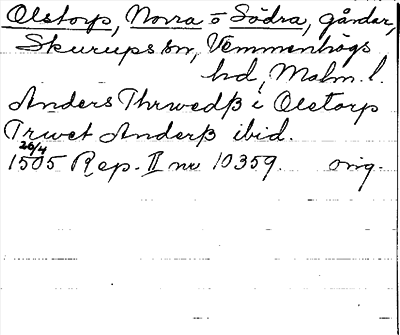 Olstorp, Norra o Södra, gårdar,
Skurups sn, Vemmenhögs
hd, Malm. l.
Anders Thrwedß i Olstorp
Trwet Anderß ibid.
26/4
1505 Rep. II nr 10359. orig.